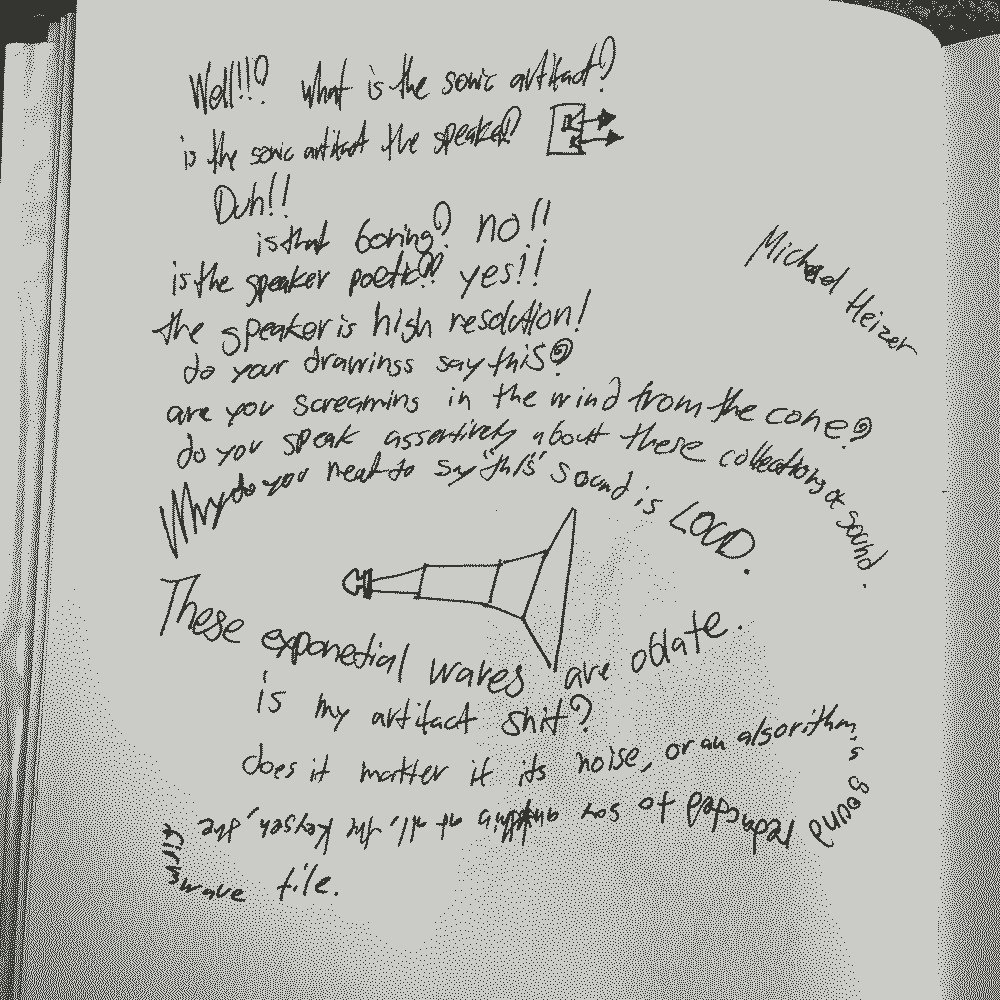 Well!!? What is the sonic artifact?
is the sonic artifact the speaker?
Duh!!
is that boring? no!!
is the speaker poetic?? yes!!
the speaker is high resolution!
do your drawings say this?
are you screaming in the wind from the cone?
do you speak assertively about these collections of sound.
Why do you need to say "this" sound is LOUD.
Michael Heizer
These exponetial waves are oblate.
is my artifact shit?
does it matter if its noise, or an algorithm,
is sound reduced to say anything at all, the keyset, the
firmwave file.